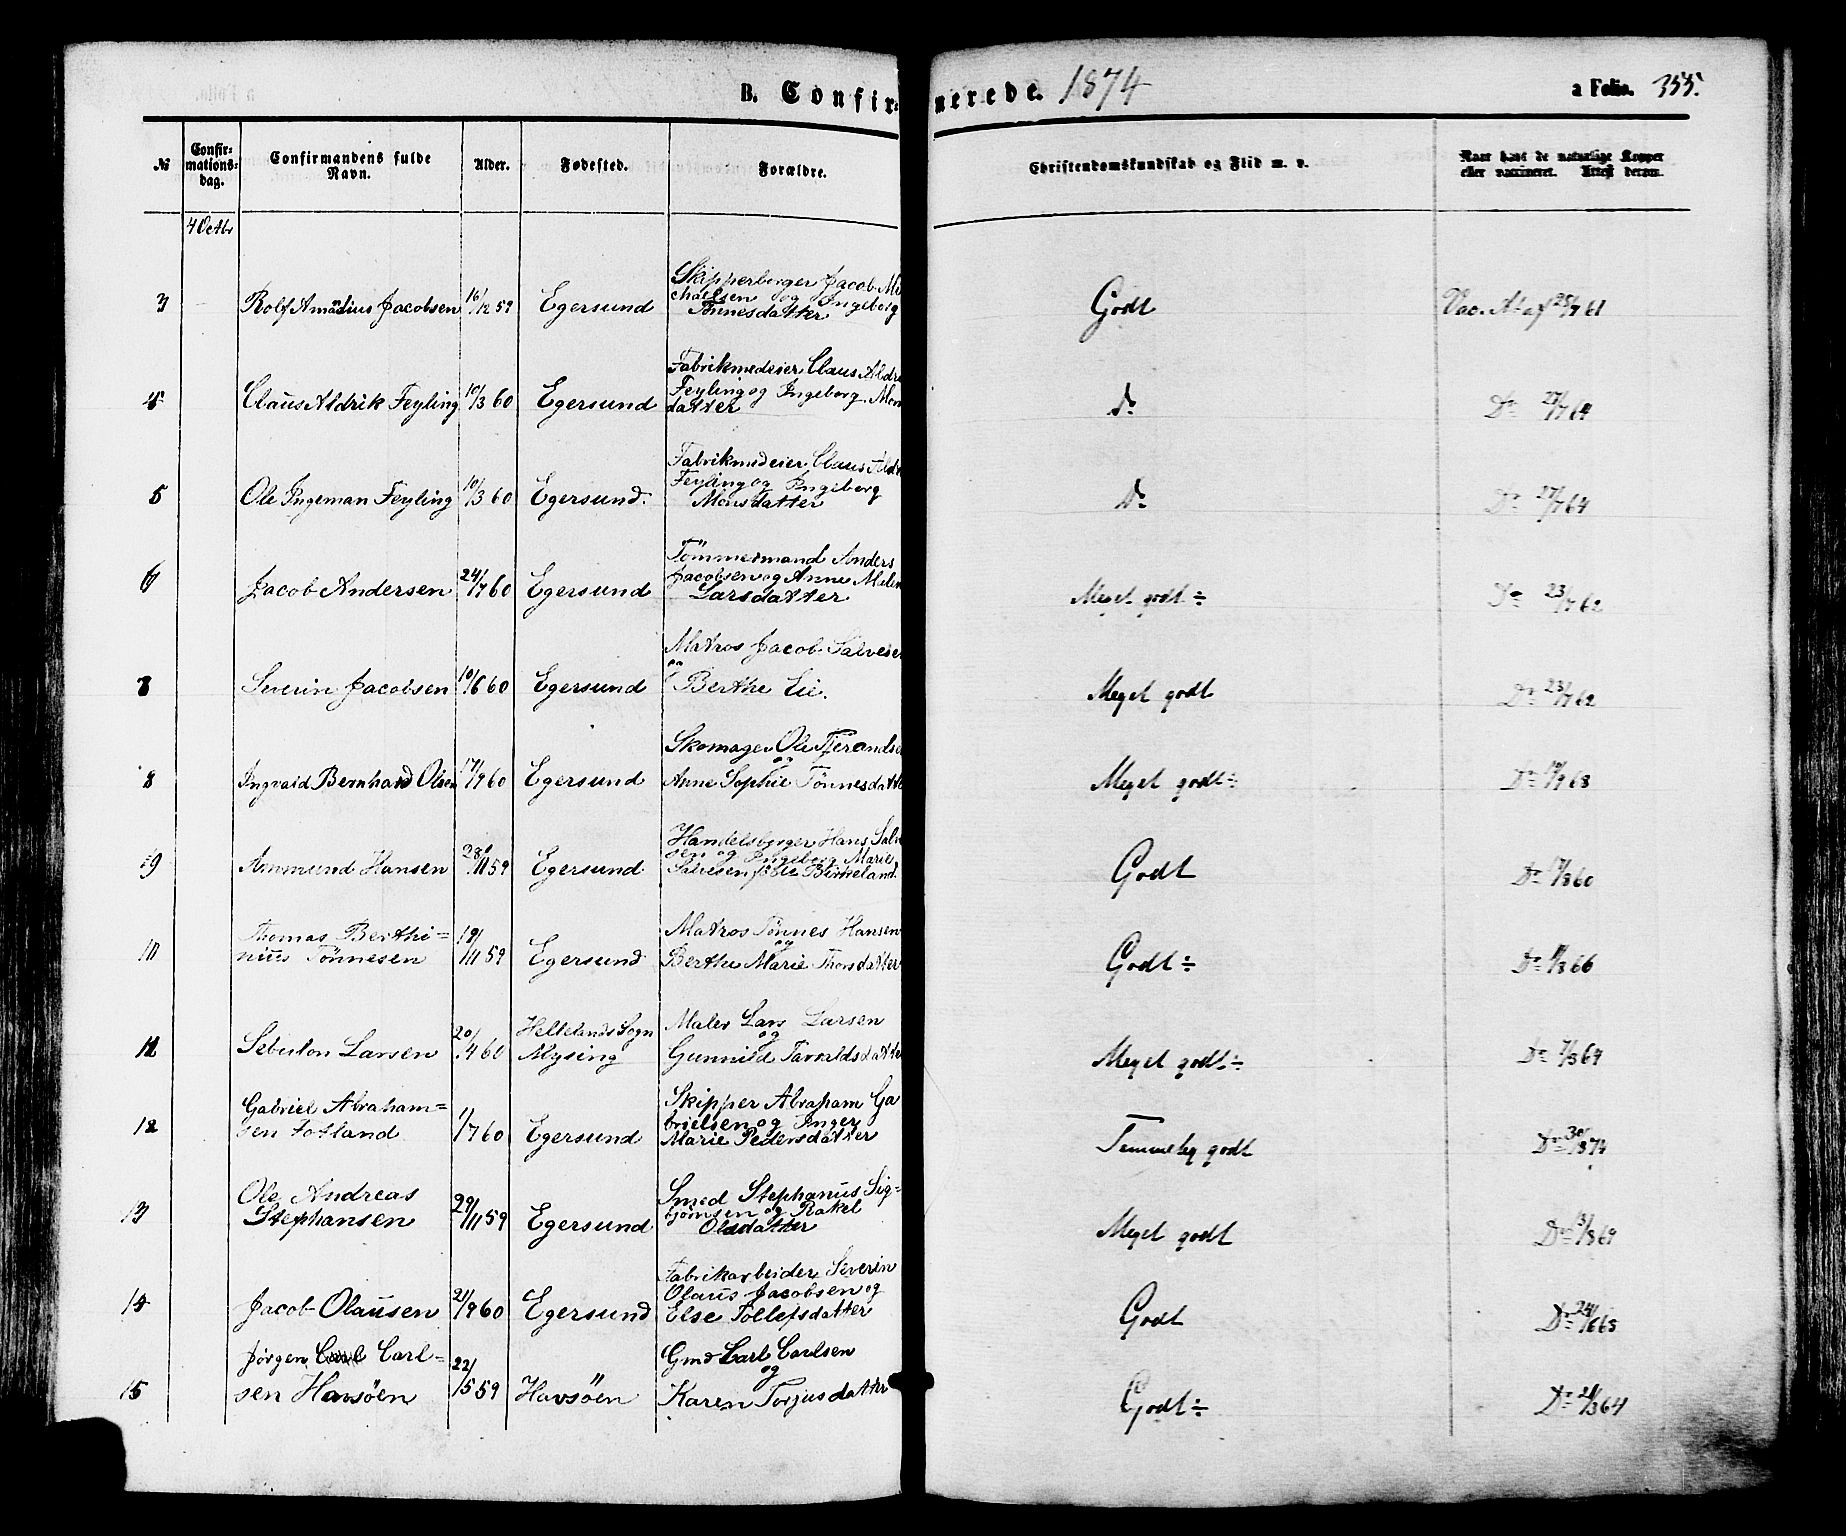 B. Confirmerede. 1874
a Folio. 355.
№ Confirmations-dag. Confirmandens fulde Navn. Alder. Fødested. Forældre. Christendomskundskab og Flid m. v. Naar havt de naturlige Kopper eller vaccineret. Attest derom.
4 Octbr
3 Rolf Amadius Jacobsen 16/12 59 Egersund Skipperborger Jacob Mi
chaelsen og Ingeborg
Tønnesdatter Godt Vac. Atest 25/7 61
4 Claus Aldrik Feyling 10/3 60 Egersund Fabrikmedeier Claus Aldr
Feyling og Ingeborg Mon
datter Do 27/7 64
5 Ole Ingeman Feyling 10/3 60 Egersund. Fabrikmedeier Claus Ald
Feyling og Ingeborg
Monsdatter Do 27/7 64
6 Jacob Andersen 24/7 60 Egersund Tömmermand Anders
Jacobsen og Anne Malen
Larsdatter Meget godt ÷ Do 23/7 62
Severin Jacobsen 10/6 60 Egersund Matros Jacob Salvese
og
Berthe Eie. Meget godt Do 23/7 62
8 Ingvald Bernhard Olsen 17/9 60 Egersund Skomager Ole Tjerandse
og
Anne Sophie Tönnesdatte Meget godt ÷ Do 68
9 Ammund Hansen 28/11 59 Egersund Handelsborger Hans Salv
sen og Ingeborg Marie
Salvesen födt Birkeland. Godt Do 60
10 Thomas Berthi=
nius Tönnesen 19/11 59 Egersund Matros Tönnes Hansen
og
Berthe Marie Thorsdatter Godt ÷ Do 66
11 Sebulon Larsen 20/4 60 Hellelands Sogn
Mysing Maler Lars Larsen
og
Gunnild Tarraldsdatte Meget godt ÷ Do 7/8 64
12 Gabriel Abraham=
sen Fotland 1/7 60 Egersund Skipper Abraham Ga
brielsen og Inger
Marie Pedersdatter Temmelig godt Do 30/8 74
13 Ole Andreas
Stephansen 29/11 59 Egersund Smed Stephanus Sig=
bjørnsen og Rakel
Olsdatter Meget godt Do 69
14 Jacob Olausen 21/9 60 Egersund Fabrikarbeider Severin
Olaus Jacobsen og
Else Tollefsdatter Godt Do 24/6 63
15 Jørgen Carl Carl=
sen Havsöen 22/5 59 Havsöen Gmd Carl Carlsen
og
Karen Torjusdatter Godt ÷ Do 21/3 64